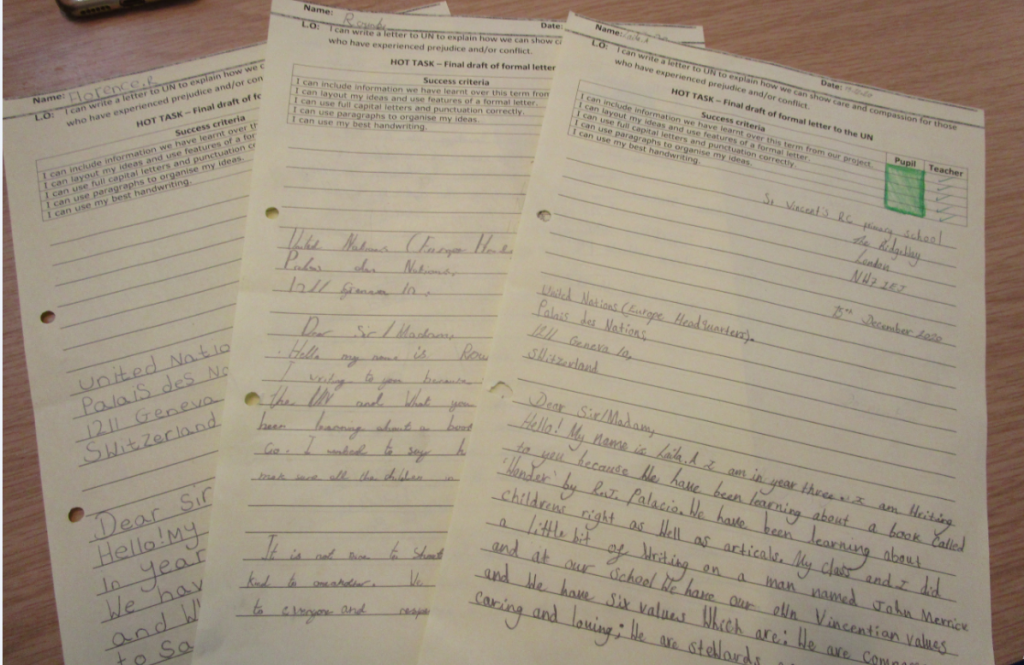 Name: Florence.R
L.O: I can write a letter to UN to explain how we ca
who have experienced prejudice and/or conflict.
HOT TASK – Final draft of for
Success criteria
I can include information we have learnt over th
I can layout my ideas and use features of a for
I can use full capital letters and punctuation c
I can use paragraphs to organise my ideas.
I can use my best handwriting.
United Natio
Palais des Na
1211 Geneva
Switzerland
Dear Sir
Hello! My
In year
We hav
and W
to Sa
Name:
Date:
L.O: I can write a letter to UN to explain how we can show c
who have experienced prejudice and/or conflict.
HOT TASK – Final draft of formal letter
Success criteria
I can include information we have learnt over this term from
I can layout my ideas and use features of a formal letter.
I can use full capital letters and punctuation correctly.
I can use paragraphs to organise my ideas.
I can use my best handwriting.
United Nations (Europe Head
Palais des Nations,
1211 Geneva 10.
Dear Sir/Madam,
Hello my name is
I writing to you because
the UN and What you
been learning about a book
Go. I wanted to say h
make sure all the children in
It is not nice to
kind to V
to everyone and respe
Name:
Date:
L.O: I can write a letter to UN to explain how we can show care and compassion for those
who have experienced prejudice and/or conflict.
HOT TASK – Final draft of formal letter to the UN
Success criteria Pupil Teacher
I can include information we have learnt over this term from our project.
I can layout my ideas and use features of a formal letter.
I can use full capital letters and punctuation correctly.
I can use paragraphs to organise my ideas.
I can use my best handwriting.
St Vincent's RC primary school
The Ridgeway
London
NW7 1EJ
December 2020
United Nations (Europe Headquarters).
Palais des Nations,
1211 Geneva 10,
Switzerland
Dear Sir/Madam,
Hello! My name is Laila. I am in year three. I am Writing
to you because We have been learning about a book called
'Wonder' by R.J. Palacio. We have been learning about
childrens right as Well as articals. My class and I did
a little bit of Writing on a man named John Merrick
and at our school We have our own Vincentian values
and We have six values Which are: We are compa
caring and loving; We are stewards